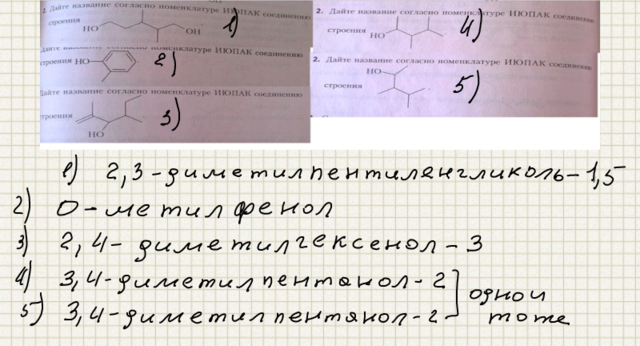 1. Дайте название согласно номенклатуре ИЮПАК соединению
строения
HO
OH
1)
Дайте название согласно номенклатуре ИЮПАК соединению
строения HO
2)
Дайте название согласно номенклатуре ИЮПАК соединению
строения
HO
3)
2. Дайте название согласно номенклатуре ИЮПАК соединению
строения HO
4)
2. Дайте название согласно номенклатуре ИЮПАК соединению
HO
строения
5)
1) 2,3-диметилпентиленгликоль-1,5
2) О-метилфенол
3) 2,4-диметилгексенол-3
4) 3,4-диметилпентанол-2
5) 3,4-диметилпентанол-2
одно и
тоже